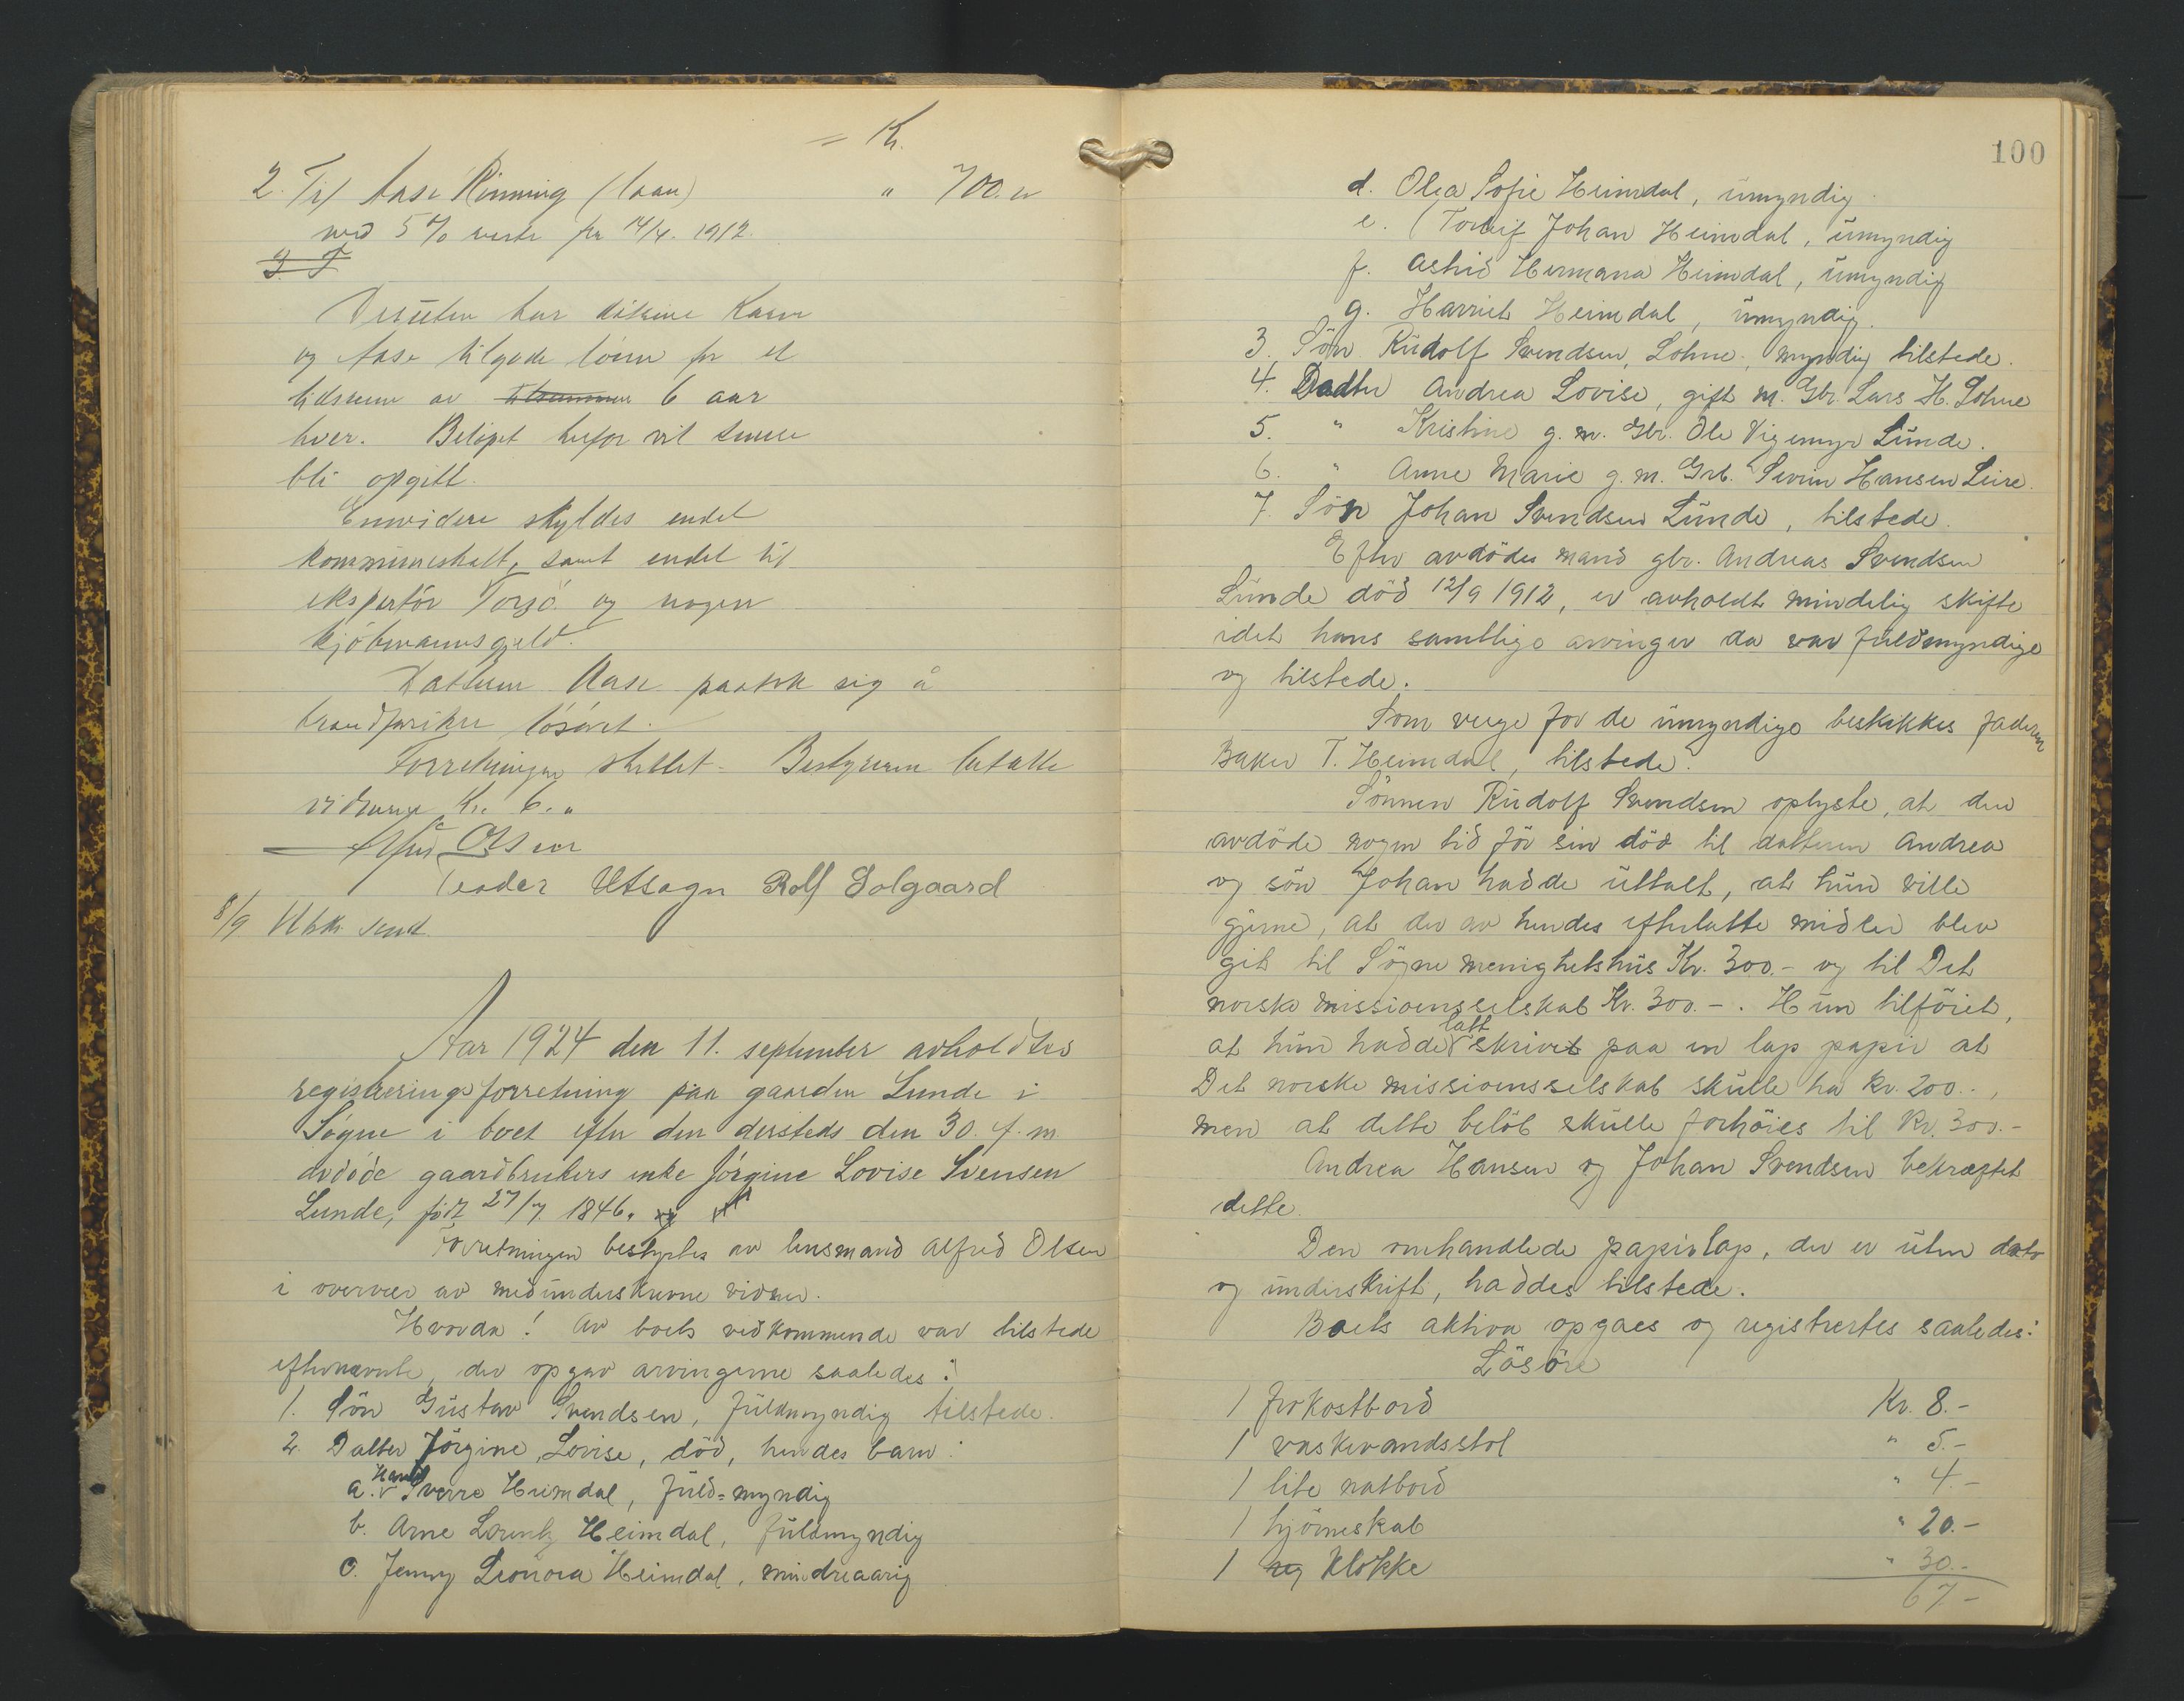 = Kr.
2. Til Aase Rinning (laan) " 700.„
med 5 % rente fra 14/4. 1912.
3. T
Desuten har døtrene Karen
og Aase tilgode lönn for et
tidsrum av tilsammen 6 aar
hver. Belöpet herfor vil senere
bli opgitt.
Envidere skyldes endel
kommuneskatt, samt endel til
ekspeditör Torsö og nogen
kjöbmannsgjeld.
Datteren Aase paatok sig å
brandforsikre lösöret.
Forretningen sluttet. Bestyreren betalte
vidnerne Kr. 6.„
Alfred Olsen
Teodor Utsogn Rolf Solgaard
8/9 Utskr. sendt.
Aar 1924 den 11. september avholdtes
registreringsforretning paa gaarden Lunde i
Sögne i boet efter den dersteds den 30. f. m.
avdöde gaardbrukers enke Jörgine Lovise Svensen
Lunde, född 27/7 1846. og
Forretningen bestyrtes av lensmand Alfred Olsen
i overvær av medunderskrevne vidner.
Hvorda! Av boets vedkommende var tilstede
efternævnte, der opgav arvingerne saaledes:
1. Sön Gustav Svendsen, fuldmyndig tilstede.
2. Datter Jörgine Lovise, död, hendes barn:
Harald
a. Sverre Heimdal, fuld=myndig
b. Arne Lorentz Heimdal, fuldmyndig
c. Jenny Leonora Heimdal, mindreaarig
100
d. Olea Sofie Heimdal, umyndig
e. (Torleif Johan Heimdal, umyndig
f. Astrid Hermana Heimdal, umyndig
g. Harriet Heimdal, umyndig.
3. Sön Rudolf Svendsen, Lohne, myndig tilstede.
4. Dadter Andrea Lovise, gift m. Gbr. Lars H. Lohne
5. " Kristine g. m. Gbr. Ole Vigemyr Lunde.
6. " Anne Marie g. m. Grb. Severin Hansen Leire.
7. Sön Johan Svendsen Lunde, tilstede.
Efter avdödes mand gbr. Andreas Svendsen
Lunde död 12/9 1912, er avholdt mindelig skifte
idet hans samtlige arvinger da var fuldmyndige
og tilstede.
Som verge for de umyndige beskikkes faderen
Baker T. Heimdal, tilstede.
Sönnen Rudolf Svendsen oplyste, at den
avdöde nogen tid för sin död til datteren Andrea
og sön Johan hadde uttalt, at hun ville
gjerne, at der av hendes efterlatte midler blev
git til Sögne menighetshus Kr. 300.- og til Det
norske missionsselskab Kr. 300.-. Hun tilföiet,
latt
at hun hadde skrivet paa en lap papir at
Det norske missionsselskab skulle ha kr. 200..,
men at dette belöb skulle forhöies til Kr. 300.-
Andrea Hansen og Johan Svendsen bekræftet
dette.
Den omhandlede papirlap, der er uten dato
og underskrift, haddes tilstede.
Boets aktiva opgaes og registrertes saaledes:
Lösöre
1 frokostbord Kr. 8.-
1 vaskevandsstol " 5.-
1 lite natbord " 4.-
1 hjörneskab " 20.-
1 reg klokke " 30.-
67-